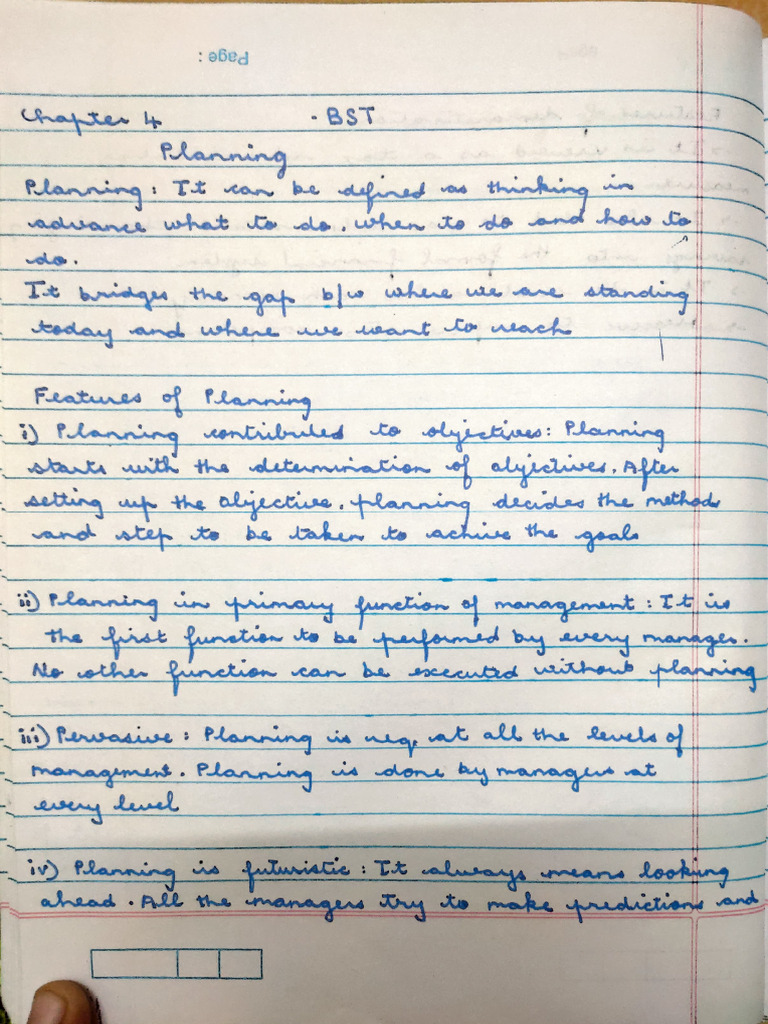 Page :
Chapter 4 · BST
Planning
Planning : It can be defined as thinking in
advance what to do, when to do and how to
do.
It bridges the gap b/w where we are standing
today and where we want to reach
Features of Planning
i) Planning contributed to objectives: Planning
starts with the determination of objectives. After
setting up the Objective, planning decides the methods
and step to be taken to achive the goals
ii) Planning in primary function of management : It is
the first function to be performed by every manager.
No other function can be executed without planning
iii) Pervasive : Planning is req. at all the levels of
management. Planning is done by managers at
every level
iv) Planning is futuristic : It always means looking
ahead. All the managers try to make predictions and